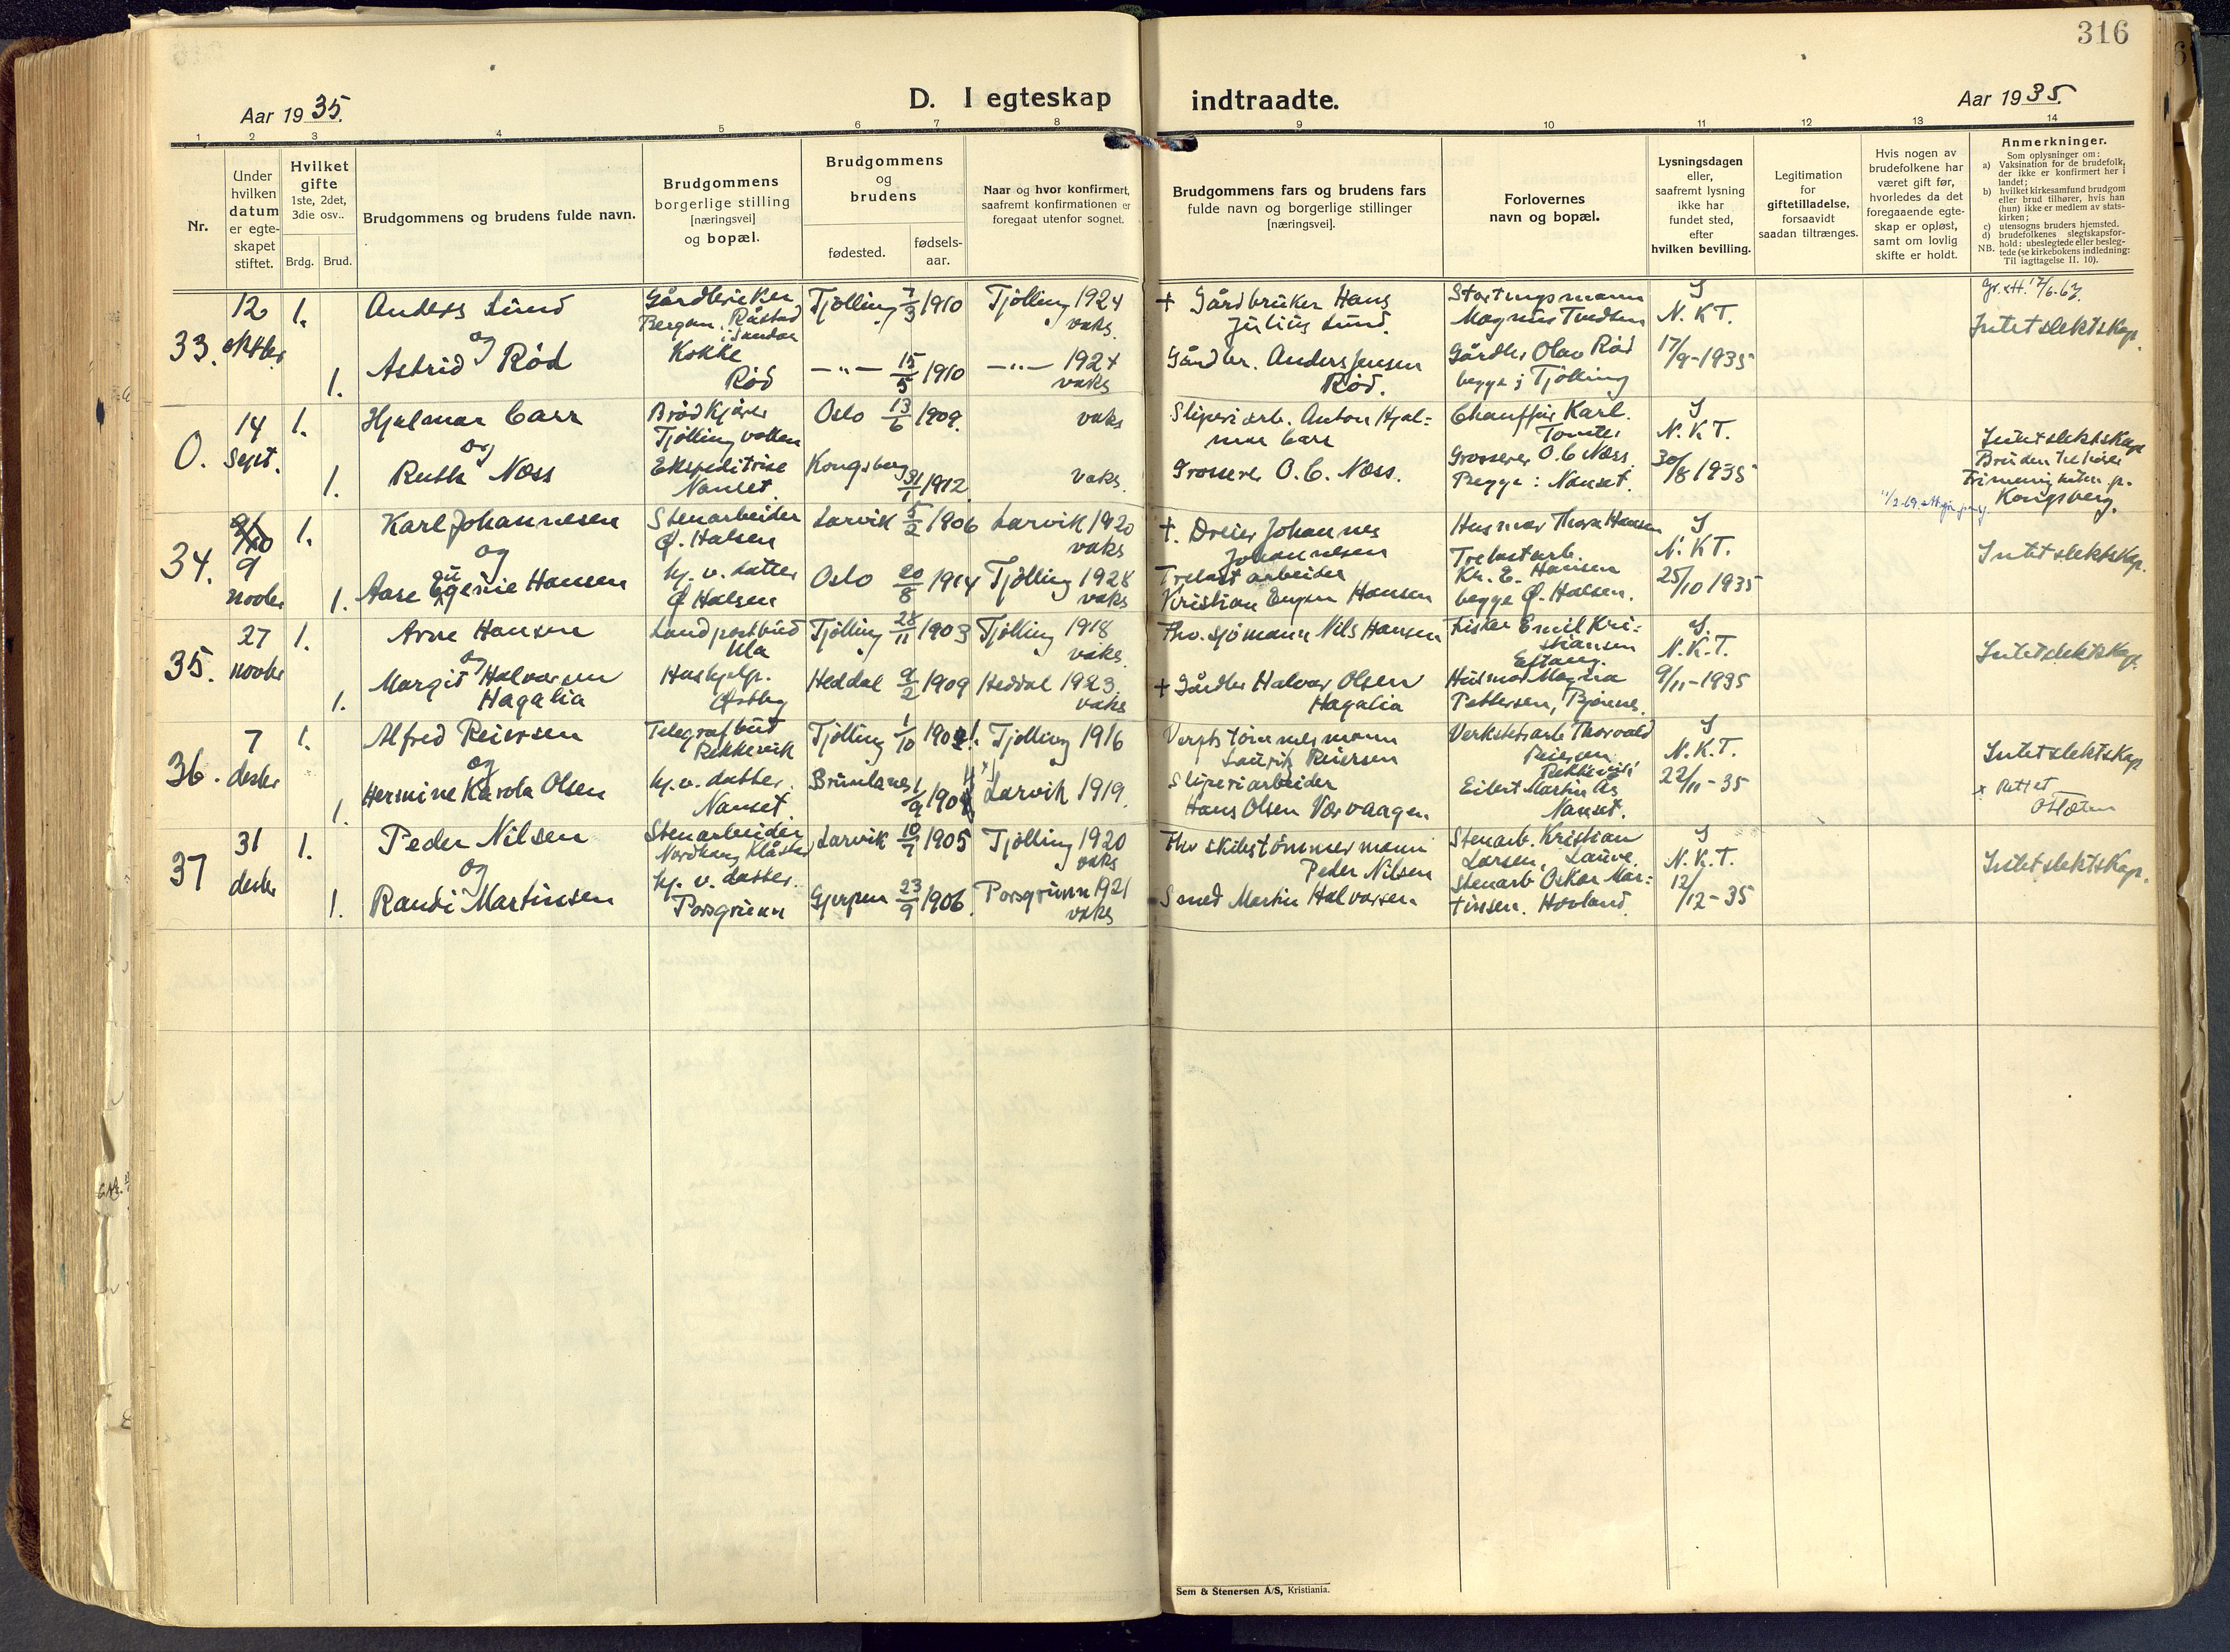 316
Aar 1935.
D. I egteskap
indtraadte.
Aar 1935.
1 2 3 4 5 6 7 8 9 10 11 12 13 14
Nr.
Under
hvilken
datum
er egte-
skapet
stiftet.
Hvilket
gifte
1ste, 2det,
3die osv..
Brdg. Brud.
Brudgommens og brudens fulde navn.
Brudgommens
borgerlige stilling
[næringsvei]
og bopæl.
Brudgommens
og
brudens
fødested.
fødsels-
aar.
Naar og hvor konfirmert,
saafremt konfirmationen er
foregaat utenfor sognet.
Brudgommens fars og brudens fars
fulde navn og borgerlige stillinger
[næringsvei].
Forlovernes
navn og bopæl.
Lysningsdagen
eller,
saafremt lysning
ikke har
fundet sted,
efter
hvilken bevilling.
Legitimation
for
giftetilladelse,
forsaavidt
saadan tiltrænges.
Hvis nogen av
brudefolkene har
været gift før,
hvorledes da det
foregaaende egte-
skap er opløst,
samt om lovlig
skifte er holdt.
Anmerkninger.
Som oplysninger om:
a) Vaksination for de brudefolk,
der ikke er konfirmert her i
landet;
b) hvilket kirkesamfund brudgom
eller brud tilhører, hvis han
(hun) ikke er medlem av stats-
kirken;
c) utensogns bruders hjemsted.
d) brudefolkenes slegtskapsfor-
hold: ubeslegtede eller besleg-
NB. tede (se kirkebokens indledning:
Til iagttagelse II. 10).
33.
12
oktber
1.
1.
Anders Lund
og
Astrid Rød
Gårdbruker
Bergan, Råstad
i Sandar
Kokke
Rød
Tjølling 7/3 1910
—"— 15/5 1910
Tjølling 1924
vaks.
—"— 1924
vaks
+ Gårdbruker Hans
Julius Lund.
Gårdbr. Anders Jensen
Rød.
Stortingsmann
Magnus
Gårdbr Olav Rød
begge i Tjølling
I
N. K T.
17/9-1935
Intet slektskap.
0.
14
Sept.
1.
1.
Hjalmar Carr
og
Ruth Næss
Brødkjører
Tjølling vollen
Ekspeditrise
Nanset.
Oslo 13/6 1909.
Kongsberg
31/1 1912
vaks
vaks.
Sliperiarb. Anton Hjal-
mar Carr
Grosserer O. C. Næss.
Chauffør Karl
Tomter
Grosserer O. C Næss
Begge: Nanset.
I
N. K T.
30/8 1935
Intet slektskap
Bruden tilhører
Frimenigheten p.
Kongsberg.
34.
9
novbr
1.
1.
Karl Johannesen
og
Aase Eugenie Hansen
Stenarbeider
Ø. Halsen
hj. v. datter
Ø Halsen
Larvik 5/2 1906
Oslo 20/8 1914
Larvik 1920
vaks
Tjølling 1928
vaks
+. Dreier Johannes
Johannesen
Trelastarbeider
Kristian Eugen Hansen
Husmor Thora Hansen
Trelastarb.
Kr. E. Hansen
begge Ø. Halsen.
I
N. K T.
25/10 1935
Intet slektskap.
35.
27
novbr
1.
1.
Arne Hansen
og
Margit Halvorsen
Hagalia
Landpostbud
Ula
Hushjelp.
Østby
Tjølling 28/11 1903
Heddal 9/2 1909
Tjølling 1918
vaks.
Heddal 1923.
vaks
Fhv. sjømann Nils Hansen
+ Gårdbr Halvor Olsen
Hagalia
Fisker Emil Kri-
stiansen
Eftang.
Husmor Magna
Pettersen, Bjønnes.
I.
N. K. T.
9/11-1935
Intet slektskap.
36.
7
desbr
1.
1.
Alfred Reiersen
og
Hermine Karola Olsen
Telegrafbud
Rekkevik
hj. v. datter.
Nanset.
Tjølling 1/10 1901.
Brunlanes
Tjølling 1916
Larvik 1919.
Verftstømmermann
Lauritz Reiersen
Sliperiarbeider
Hans Olsen Værvaagen
Verkstetsarb Thorvald
Reiersen
Rekkevik
Eilert Martin Ås
Nanset.
I
N. K. T.
22/11-35
Intet slektskap
x Rettet
37
31
desbr
1.
1.
Peder Nilsen
og
Randi Martinsen
Stenarbeider
hj. v. datter.
Porsgrunn
Larvik 10/7 1905
Gjerpen 23/9 1906.
Tjølling 1920
vaks
Porsgrunn 1921
vaks
Fhv skibstømmermann
Peder Nilsen
Smed Martin Halvorsen
Stenarb. Kristian
Larsen, Lauve.
Stenarb Oskar Mar-
tinsen. Hovland.
I
N. K. T.
12/12-35
Intet slektskap.
Sem & Stenersen A/S, Kristiania.